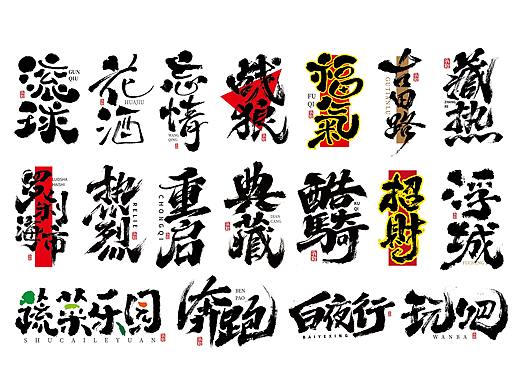 流球
GUN
QIU
花酒
HUAJIU
忘情
WANG
QING
战狼
福氣
FU
QI
古田路
GUTIANLU
藏热
罗刹海市
LUOSHA
HAISHI
热烈
RELIE
重启
CHONGQI
典藏
DIAN
CANG
酷骑
KU
QI
招財
浮城
FUCHENG
蔬菜乐园
SHUCAILEYUAN
奔跑
BEN
PAO
白夜行
BAIYEXING
玩吧
WANBA